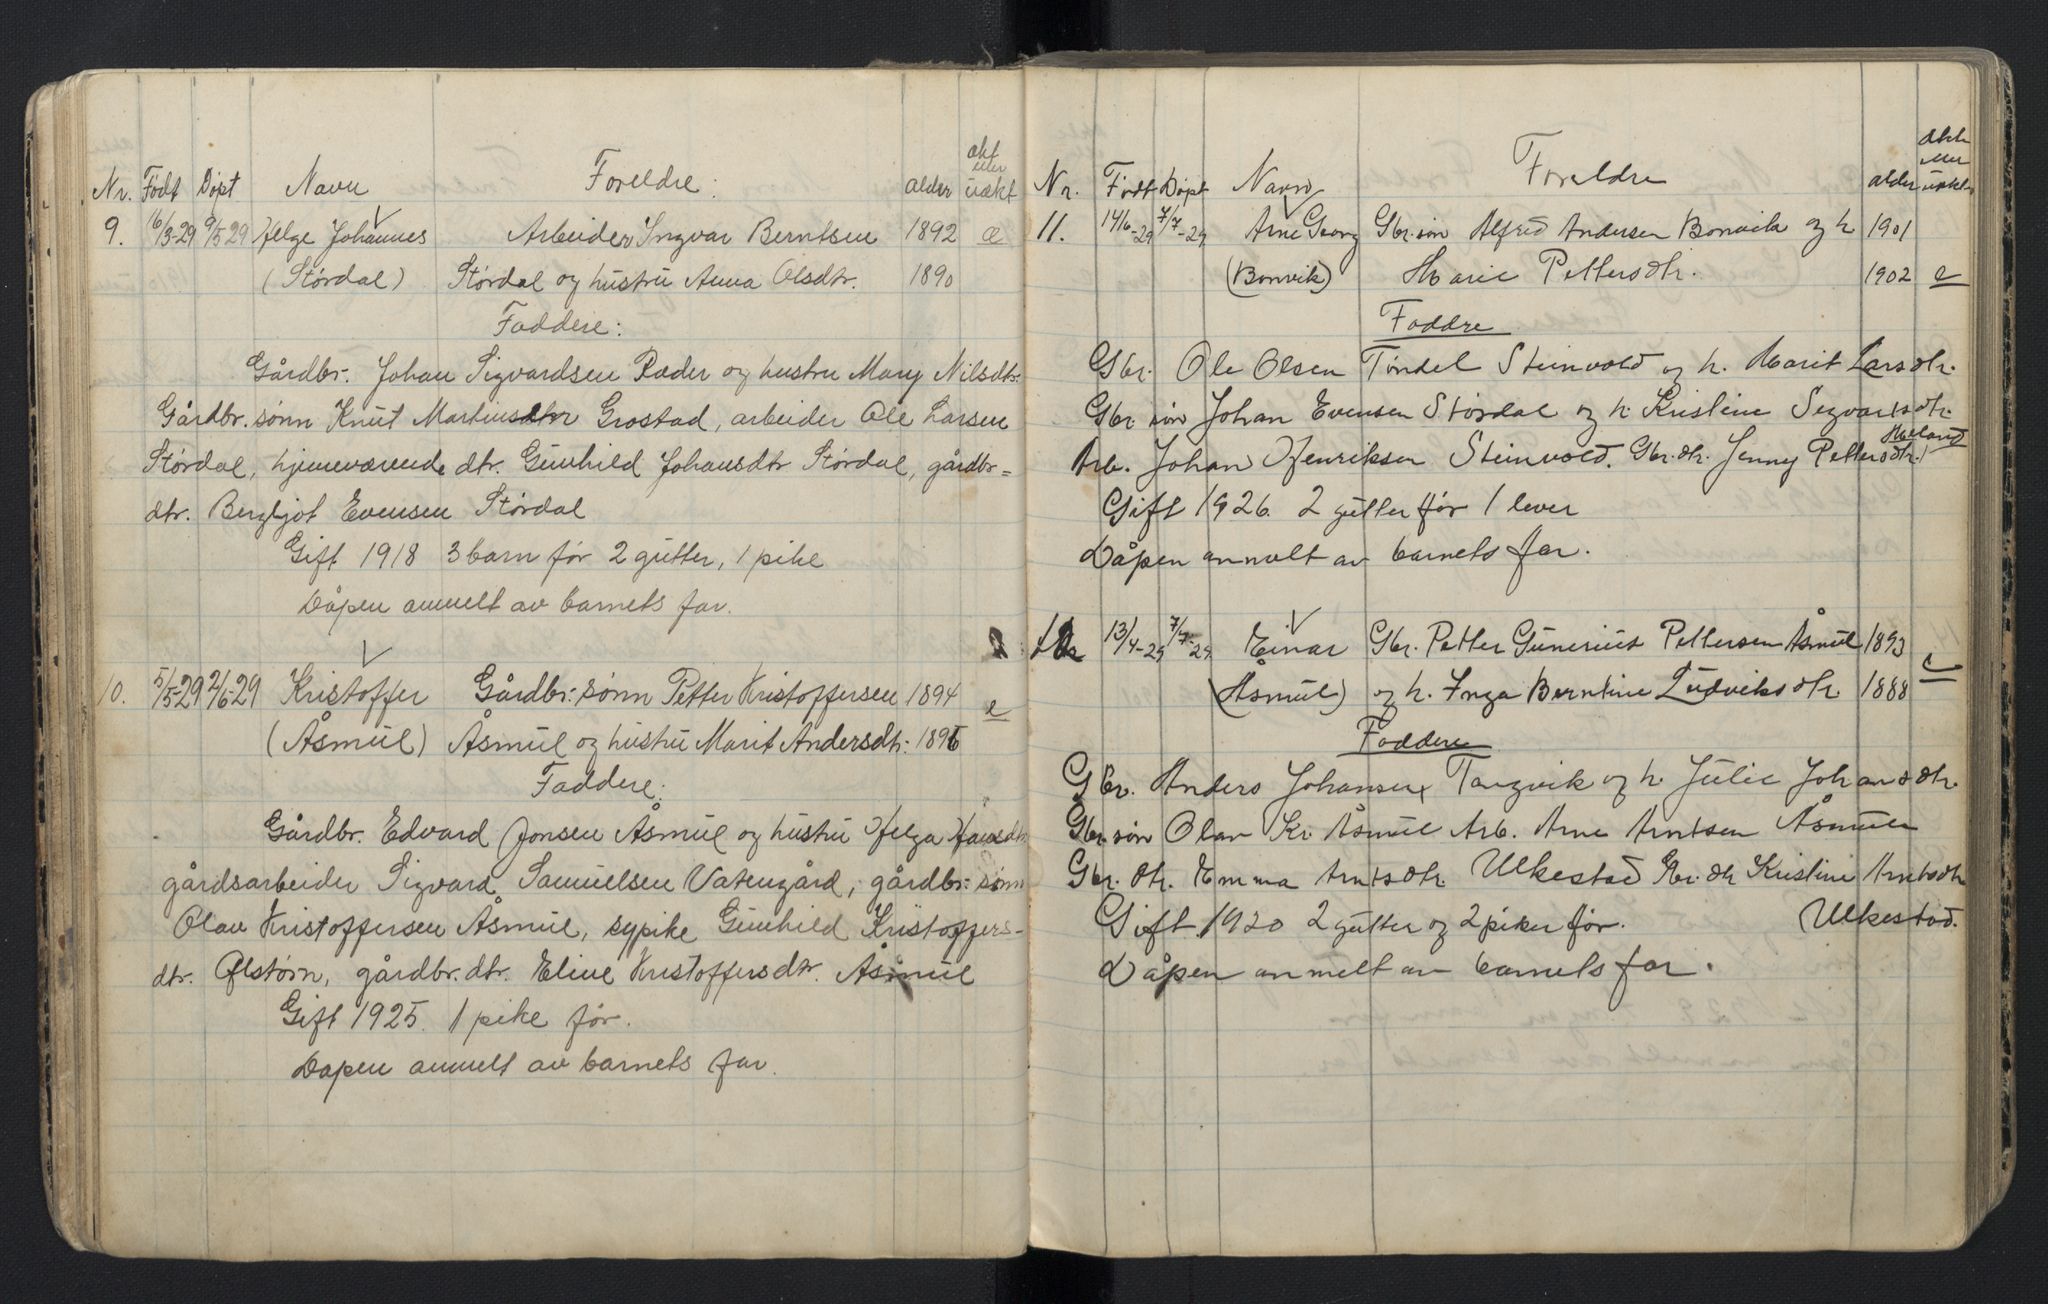 Nr. Født Døpt Navn Foreldre: alder ekt eller uekt
9. 16/3-29 9/5 29 Helge Johannes Arbeider Ingvar Berntsen 1892 e
(Stördal) Stördal og hustru Anna Olsdtr. 1890
Faddere:
Gårdbr. Johan Sigvardsen Ræder og hustru Mary Nilsdtr.
Gårdbr. sønn Knut Martinsen Grostad, arbeider Ole Larsen
Stördal, hjemmeværende dtr. Gunhild Johansdtr Stördal, gårdbr=
dtr. Bergljot Evensen Stördal
Gift 1918 3 barn før 2 gutter, 1 pike
Dåpen anmelt av barnets far.
10. 5/5-29 2/6-29 Kristoffer Gårdbr.-sønn Petter Kristoffersen 1894 e
(Åsmul) Åsmul og hustru Marit Andersdtr. 1896
Faddere:
Gårdbr. Edvard Jonsen Åsmul og hustru Helga Hansdtr.
gårdsarbeider Sigvard Samuelsen Vatengård, gårdbr.-sønn
Olav Kristoffersen Åsmul, sypike Gunhild Kristoffers-
dtr. Ølstörn, gårdbr. dtr. Eline Kristoffersdtr. Åsmul
Gift 1925. 1 pike før.
Dåpen anmelt av barnets far.
Nr. Født Døpt Navn Foreldre alder ekte eller uekte
11. 14/6-29 7/7-29 Arne Georg Gbr. søn Alfred Andersen Bonvik og h 1901
(Bonvik) Marie Pettersdtr. 1902 e
Faddre
Gbr. Ole Olsen Tøndel Steinvold og h. Marit Larsdtr.
Gbr. søn Johan Evensen Stördal og h. Kristine Segvartsdtr.
Arb. Johan Henriksen Steinvold. Gbr. dtr. Jenny Pettersdtr.
Gift 1926. 2 gutter før 1 lever
Dåpen anmelt av barnets far.
12 13/4-29 7/7-29 Einar Gbr. Petter Gunerius Pettersen Åsmul 1893 e
(Åsmul) og h. Inga Berntine Ludviksdtr. 1888
Faddere
Gbr. Anders Johansen Tangvik og h. Julie Johansdtr.
Gbr. søn Olav Kr. Åsmul Arb. Arne Arntsen Åsmul
Gbr. dtr. Emma Arntsdtr. Ulkestad Gbr. dtr Kristine Arntsdtr
Gift 1920 2 gutter og 2 piker før. Ulkestad.
Dåpen anmelt av barnets far.